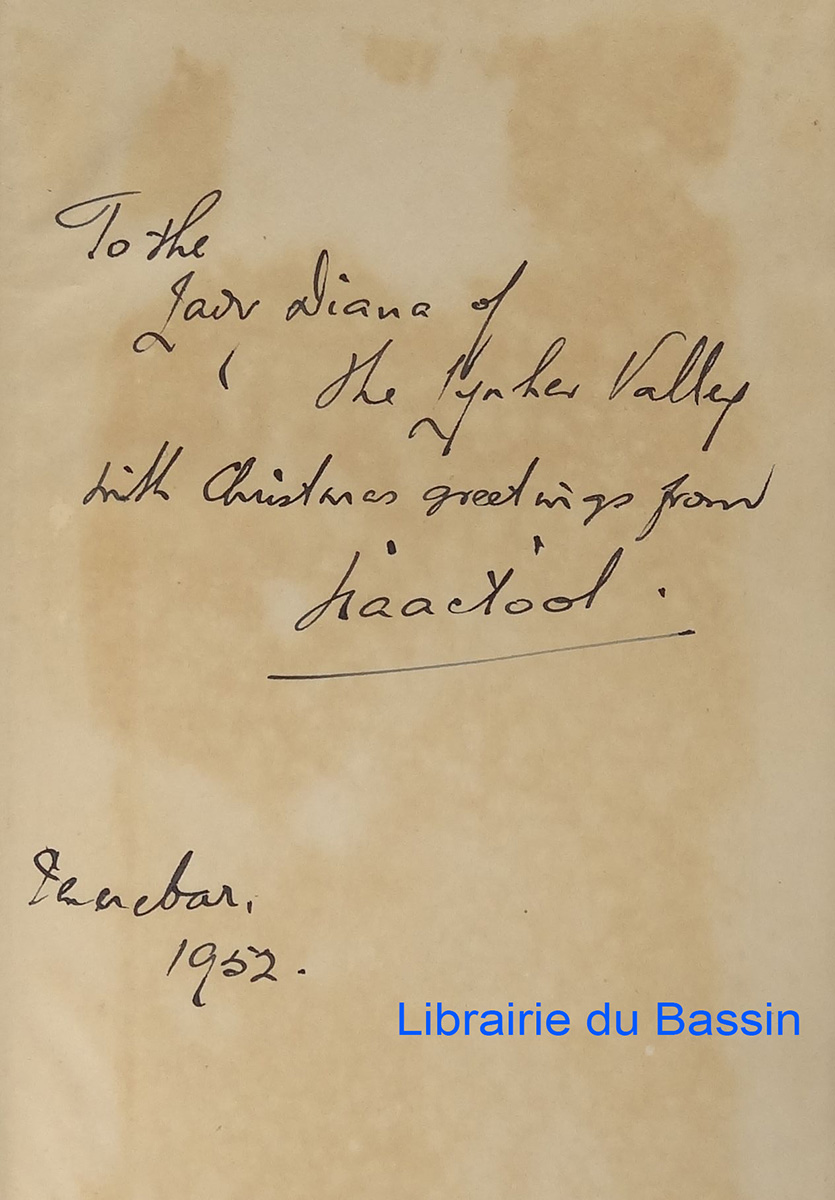 To the
Lady Diana of
the Lynher Valley
with Christmas greetings from
Isaac Foot.
Pencrebar,
1952.
Librairie du Bassin